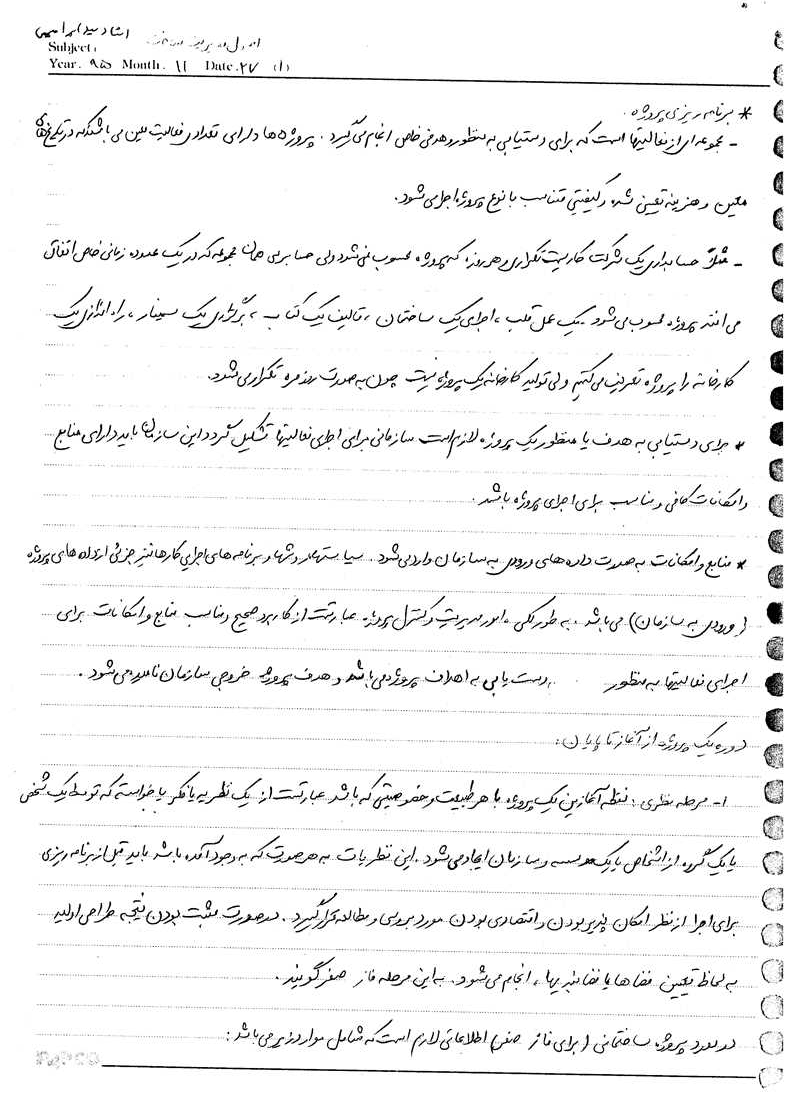 استاد سید ابراهیمی
اصول مدیریت ساخت
Subject:
Year. ۹۵ Month. ۱۱ Date. ۲۷ (۱)
* برنامه ریزی پروژه.
- مجموعه ای از فعالیتها است که برای دستیابی به منظور و هدفی خاص انجام می گیرد. پروژه ها دارای تعدادی فعالیت معین می باشند که در تاریخ های
معین و هزینه تعیین شده و کیفیتی متناسب با نوع پروژه اجرا می شود.
- مثلاً حسابداری یک شرکت کاریست تکراری و هر روزه که پروژه محسوب نمی شود ولی حسابرسی همان مجموعه که در یک محدوده زمانی خاص اتفاق
می افتد پروژه محسوب می شود. یک عمل قلب، اجرای یک ساختمان، تالیف یک کتاب، برگزاری یک سمینار، راه اندازی یک
کارخانه را پروژه تعریف می کنیم ولی تولید کارخانه یک پروژه نیست چون به صورت روزمره تکرار می شود.
* برای دستیابی به هدف یا منظور یک پروژه لازم است سازمانی برای اجرای فعالیتها تشکیل گردد این سازمان باید دارای منابع
و امکانات کافی و مناسب برای اجرای پروژه باشد.
* منابع و امکانات به صورت داده های ورودی به سازمان وارد می شود. سیاستها، روشها و برنامه های اجرای کارها نیز جزئی از داده های پروژه
(ورودی به سازمان) می باشد. به طور کلی، امور مدیریت و کنترل پروژه عبارتست از کاربرد صحیح و مناسب منابع و امکانات برای
اجرای فعالیتها به منظور دست یابی به اهداف پروژه می باشد و هدف پروژه خروجی سازمان نامیده می شود.
دوره یک پروژه از آغاز تا پایان:
۱- مرحله نظری: نقطه آغازین یک پروژه با هر طبیعت و خصوصیتی که باشد عبارتست از یک نظریه یا فکر یا خواسته که توسط یک شخص
یا یک گروه از اشخاص یا یک موسسه و سازمان ایجاد می شود. این نظریات به هر صورت که به وجود آمده باشد باید قبل از برنامه ریزی
برای اجرا از نظر امکان پذیر بودن و اقتصادی بودن مورد بررسی و مطالعه قرار گیرد. در صورت مثبت بودن نتیجه طراحی اولیه
به لحاظ تعیین فضاها یا فضاپذیریها، انجام می شود. به این مرحله فاز صفر گویند.
در مورد پروژه ساختمانی (برای فاز صفر) اطلاعاتی لازم است که شامل موارد زیر می باشد: